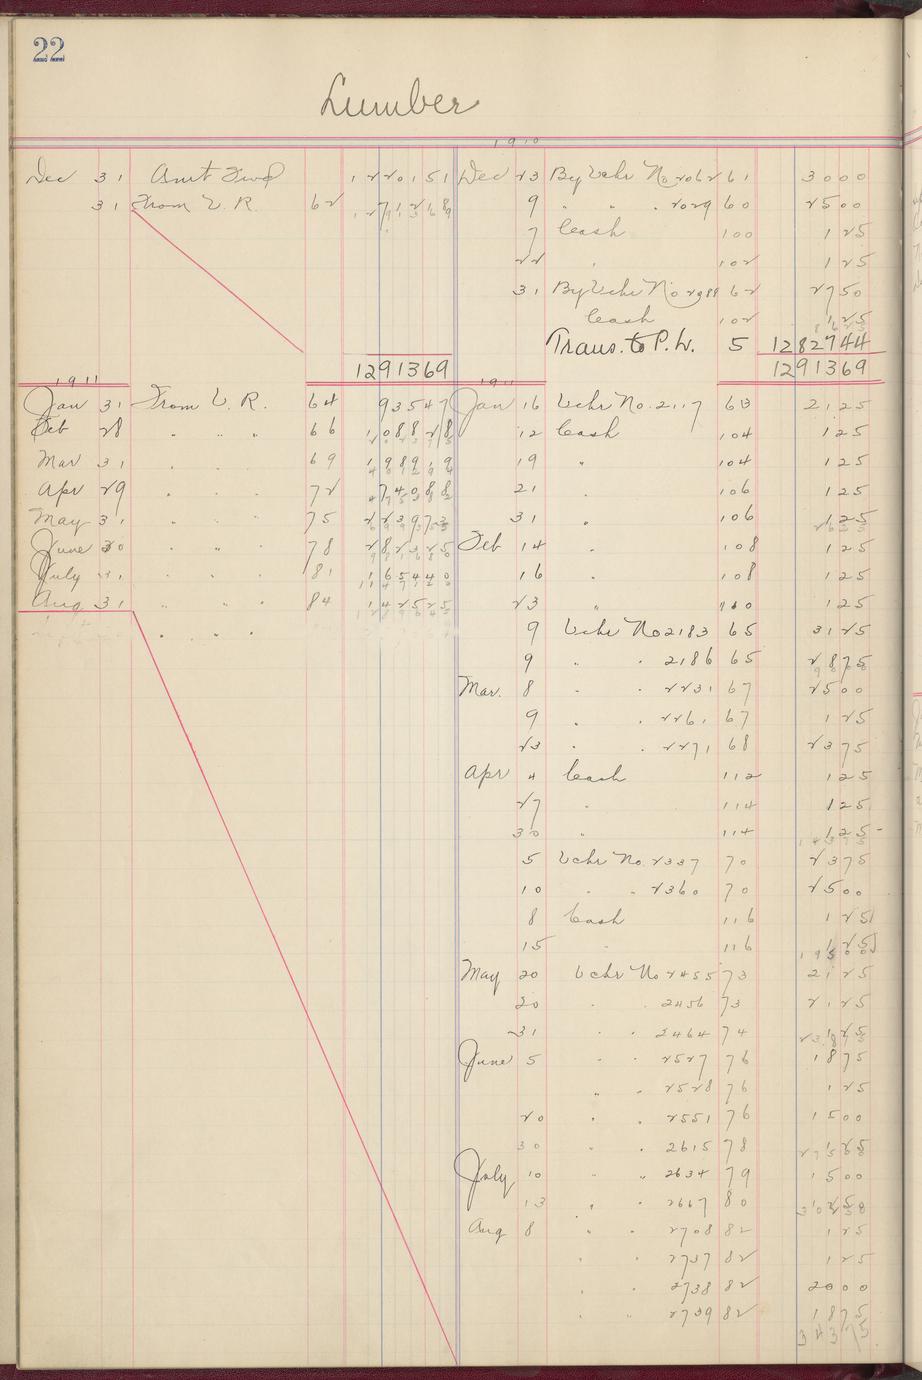 22
Lumber
1910
Dec 31 Amt Fwd 1220151
31 From V. R. 62 71218
1291369
1911
Jan 31 From V. R. 64 93547
Feb 28 " " " 66 108828
Mar 31 " " 69 198919
Apr 29 " " 72 74088
May 31 " " 75 223973
June 30 " " 78 282325
July 31 " " " 81 165440
Aug 31 " " " 84 142525
" " "
Dec 23 By Vchr No 2062 61 3000
9 " " " 2029 60 2500
7 Cash 100 125
22 " 102 125
31 By Vchr No 2088 62 2750
Cash 102 125
Trans. to P. L. 5 1282744
1291369
1911
Jan 16 Vchr No. 2117 63 2125
12 Cash 104 125
19 " 104 125
21 " 106 125
31 " 106 125
Feb 14 " 108 125
16 " 108 125
23 " 110 125
9 Vchr No 2183 65 3125
9 " " 2186 65 2875
Mar. 8 " " 2231 67 2500
9 " " 2261 67 125
23 " " 2271 68 2375
Apr 4 Cash 112 125
27 " 114 125
30 " 114 125
5 Vchr No. 2337 70 2375
10 " " 2360 70 2500
8 Cash 116 125
15 " 116 125
May 20 Vchr No 2455 73 2125
20 " " 2456 73 2125
31 " " 2464 74 125
June 5 " " 2527 76 1875
" " 2528 76 125
20 " " 2551 76 1500
30 " " 2615 78 125
July 10 " " 2634 79 1500
13 " " 2667 80
Aug 8 " " 2708 82 125
" 2737 82 125
" 2738 82 2000
" " 2739 82 1875
34375